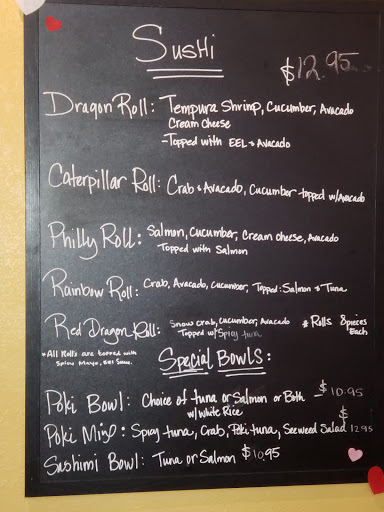 Sushi
$12.95
Dragon Roll: Tempura Shrimp, Cucumber, Avocado
Cream Cheese
-Topped with EEL & Avocado
Caterpillar Roll: Crab & Avocado, Cucumber topped w/Avocado
Philly Roll: Salmon, Cucumber, Cream cheese, Avocado
Topped with Salmon
Rainbow Roll: Crab, Avocado, Cucumber, Topped: Salmon & Tuna
Red Dragon Roll: Snow crab, Cucumber, Avocado
Topped w/ Spicy tuna
# Rolls 8 pieces
Each
*All Rolls are topped with
Spicy Mayo, EEl Sauce.
Special Bowls:
Poki Bowl: Choice of tuna or Salmon or Both - $10.95
w/ white Rice
Poki Mix: Spicy tuna, Crab, Poki tuna, Seeweed Salad $12.95
Sashimi Bowl: Tuna or Salmon $10.95